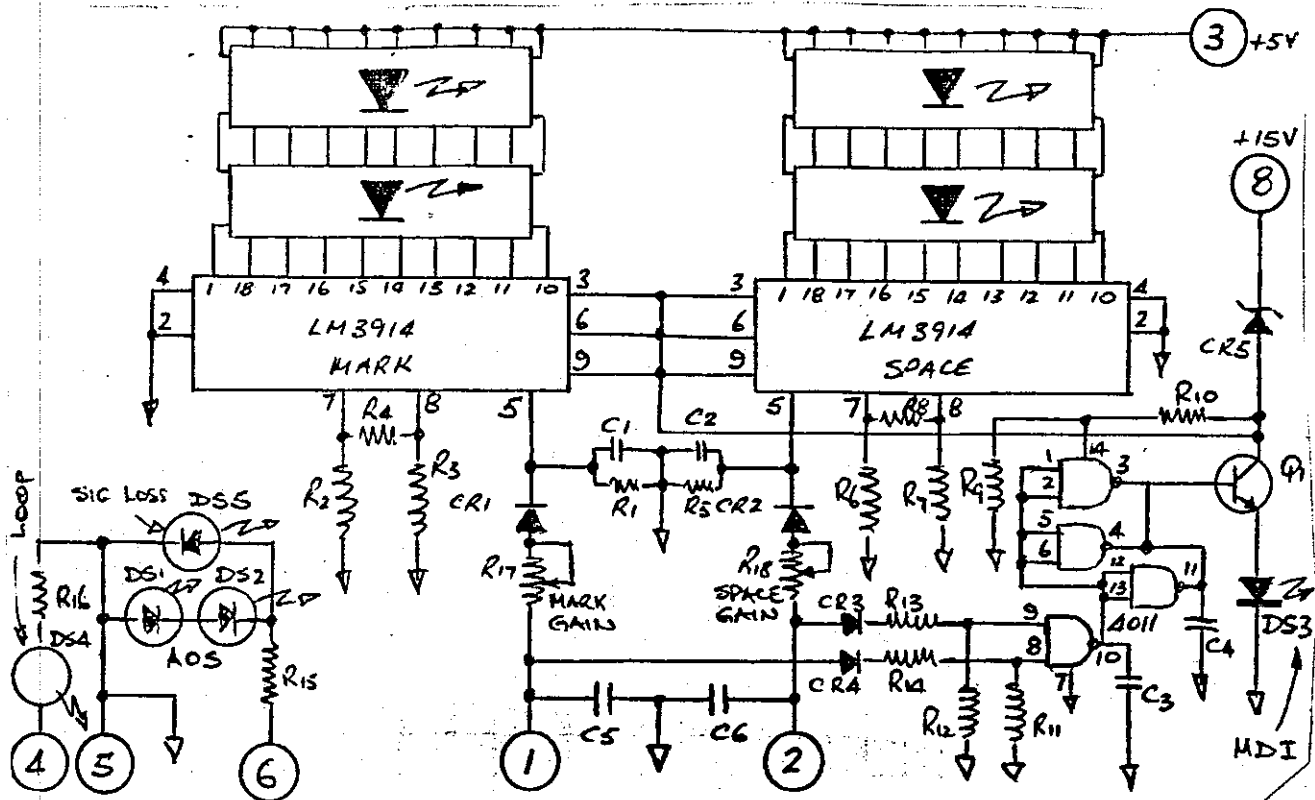 3 +5V
+15V
8
4
2
1 18 17 16 15 14 13 12 11 10
3
6
9
LM3914
MARK
7 8 5
3
6
9
1 18 17 16 15 14 13 12 11 10
4
2
LM3914
SPACE
5 7 8
CR5
R10
R4
C1 C2
R8
R2
R3
R1
R5
CR1
CR2
R6
R7
R9
1
2
14
3
Q1
5
6
4
12
13
11
4011
LOOP
SIG LOSS DS5
DS1 DS2
AOS
R16
DS4
R15
R17
MARK
GAIN
R18
SPACE
GAIN
CR3 R13
CR4 R14
9
8
10
7
C4
DS3
C3
R12 R11
C5 C6
MDI
4 5 6 1 2